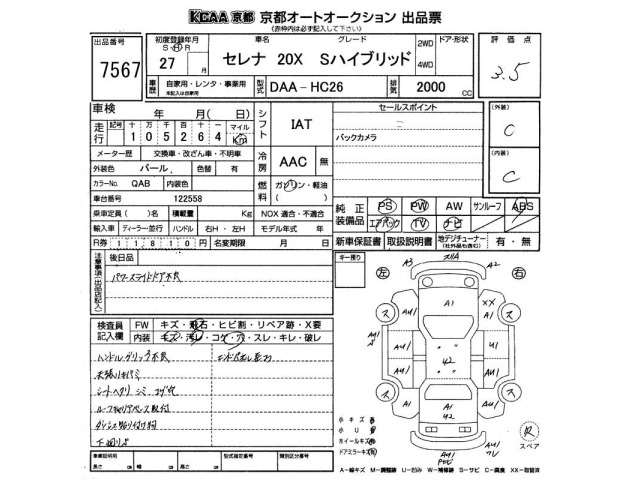 KCAA 京都 京都オートオークション 出品票
(赤枠内は必ず記入して下さい)
出品番号
7567
初度登録年月
S・H・R
27 年 月
車名 グレード
セレナ 20X Sハイブリッド
2WD
4WD
ドア・形状
評価点
3.5
車歴
自家用・レンタ・事業用
未記入は自家用
型式
DAA-HC26
排気
2000
CC
車検
年 月( 日)
走行
記号 十 万 千 百 十 一 マイル
1 0 5 2 6 4 km
シフト
IAT
セールスポイント
バックカメラ
(外装)
C
(内装)
C
メーター歴 交換車・改ざん車・不明車
外装色 パール, 色替 有
冷房
AAC 無
カラーNo. QAB 内装色
燃料
ガソリン・軽油
( )
車台番号 122558
乗車定員( )名 積載量 Kg
NOX 適合・不適合
純正装備品
PS PW AW サンルーフ ABS
エアバック TV ナビ
輸入車 ディーラー・並行 ハンドル 右H・左H
モデル年式 年
新車保証書 取扱説明書 地デジチューナー
(社外品も含む)
有・無
R券 11810円 名変期限 月 日
注意事項(出品店記入)
後日品
パワースライドドア不良
キー残り
左
右
A3
スリA
A2
A1
XX
A1
AU1
U1
A1
42
AU1
AU1
AU1
A1
U2
ス
ス
ス
ス
R
スペア
検査員記入欄
FW キズ・飛石・ヒビ割・リペア跡・X要
内装 キズ・汚レ・コゲ・穴・スレ・キレ・破レ
ハンドルグリップ不良
天張り
シートヘタリ シミ コゲ穴
取付
下廻りズ
小キズ 有
小U 有
ホイールキズ 有
ドアミラーキズ 有
車両証明用
長さ cm 幅 cm 高さ cm
型式指定番号
類別区分番号
A-線キズ M-調整跡 U-凹み W-補修跡 S-サビ C-腐食 XX-取替済